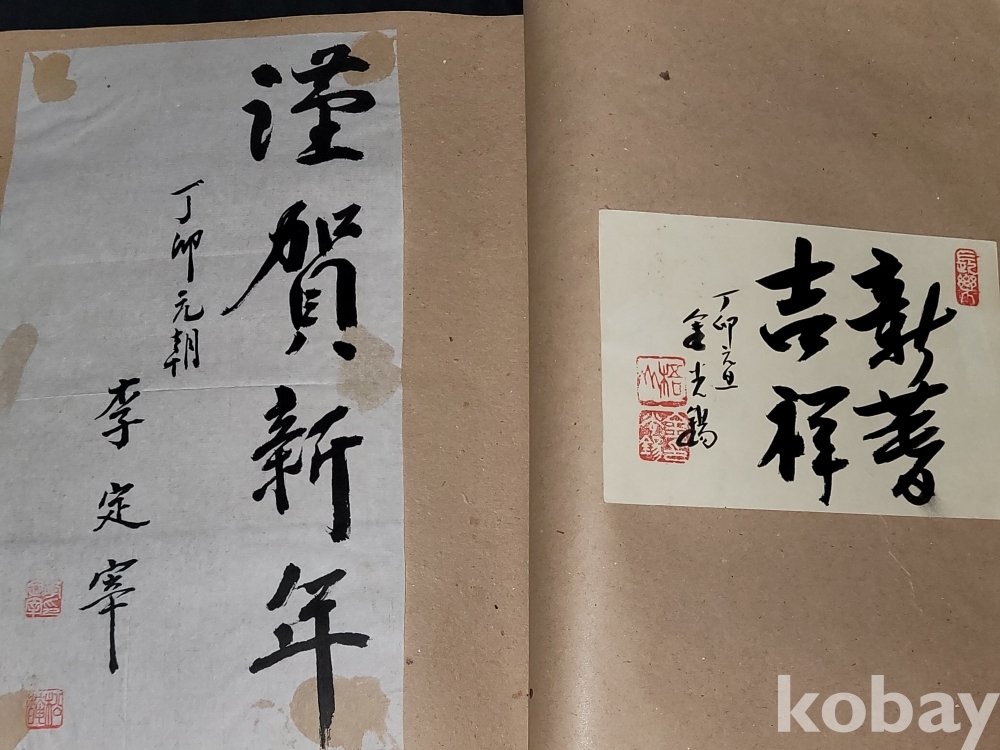 謹賀新年
丁卯元朝
李定宰
新春
吉祥
丁卯元旦
金光錫
長樂
kobay